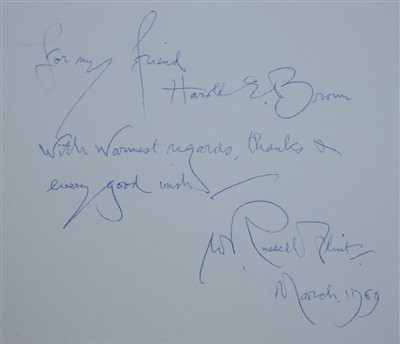 For my friend
Harold E. Brown
With warmest regards, thanks &
every good wish
W. Russell Flint.
March 1969